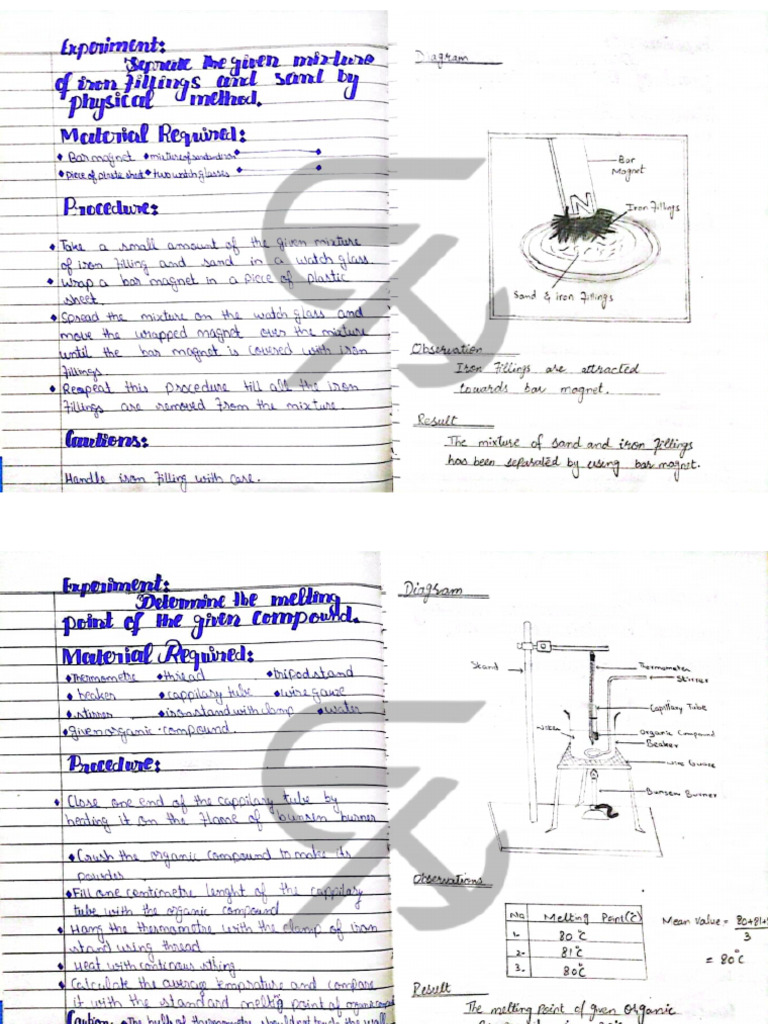 Experiment:
Seprate the given mixture
of iron fillings and sand by
physical method.
Material Required:
• Bar magnet • mixture of sand & iron
• piece of plastic sheet • two watch glasses
Procedure:
• Take a small amount of the given mixture
of iron filling and sand in a watch glass.
• Wrap a bar magnet in a piece of plastic
sheet.
• Spread the mixture on the watch glass and
move the wrapped magnet over the mixture
until the bar magnet is covered with iron
fillings.
• Reapeat this procedure till all the iron
fillings are removed from the mixture.
Cautions:
Handle iron filling with care.
Diagram
Bar
Magnet
N
Iron fillings
Sand & iron fillings
Observation
Iron fillings are attracted
towards bar magnet.
Result
The mixture of sand and iron fillings
has been separated by using bar magnet.
Experiment:
Determine the melting
point of the given compound.
Material Required:
• Thermometre • thread • tripod stand
• beaker • cappilary tube • wire gauze
• stirrer • iron stand with clamp • water
• given organic compound.
Procedure:
• Close one end of the cappilary tube by
heating it on the flame of bunsen burner
• Crush the organic compound to make its
powder.
• Fill one centimetre lenght of the cappilary
tube with the organic compound
• Hang the thermometre with the clamp of iron
stand using thread
• Heat with continous
• Calculate the average temprature and compare
it with the standard melting point of organic
Caution: • The bulb of thermometre should not touch the wall
Diagram
Stand
Thermometer
Stirrer
Capillary Tube
Organic Compound
Beaker
Wire Gauze
Bunsen Burner
Observations
No Melting Point(°C)
1. 80°C
2. 81°C
3. 80°C
Mean value = 80+81+
3
= 80°C
Result
The melting point of given organic